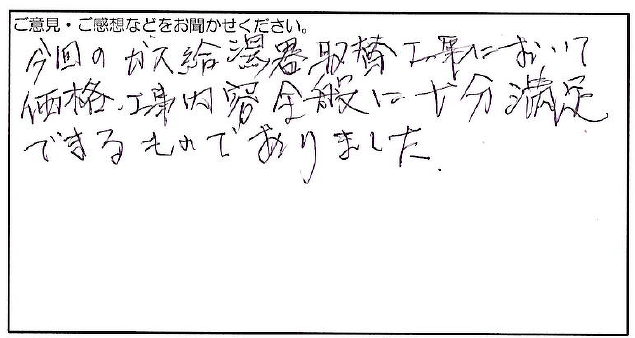 ご意見・ご感想などをお聞かせください。
今回のガス給湯器取替工事において
価格、工事内容全般に十分満足
できるものでありました.